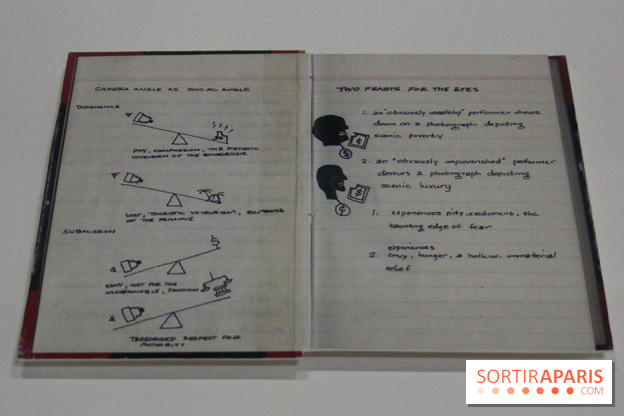 CAMERA ANGLE AS SOCIAL ANGLE
DOMINANCE
PITY, COMPASSION, THE PIETISTIC
VOYEURISM OF THE BOURGEOISIE
LUST, TOURISTIC VOYEURISM, ROMANCE
OF THE PRIMITIVE
SUBMISSION
ENVY, LUST FOR THE
UNOBTAINABLE, FANDOM
TERRORIZED RESPECT FOR
AUTHORITY
TWO FEASTS FOR THE EYES
1. an "obviously wealthy" performer chows
down on a photograph depicting
scenic poverty
2. an "obviously impoverished" performer
devours a photograph depicting
scenic luxury
1. experiences pity, excitement, the
taunting edge of fear
experiences
2. envy, hunger, a hollow, immaterial
relief
SORTIRAPARIS
.COM